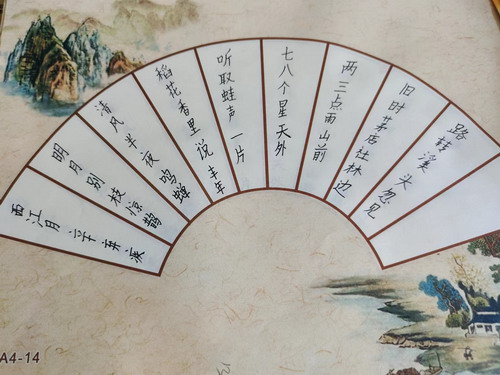 西江月 辛弃疾
明月别枝惊鹊
清风半夜鸣蝉
稻花香里说丰年
听取蛙声一片
七八个星天外
两三点雨山前
旧时茅店社林边
路转溪头忽见
A4-14